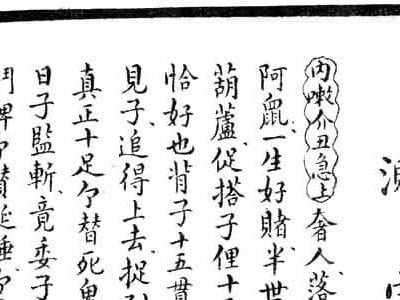 內嗽介丑急上奢人落
阿鼠一生好賭半世
葫蘆促搭子俚十
恰好也背子十五貫
見子追得上去捉
真正十足个替死鬼
日子監斬竟委子